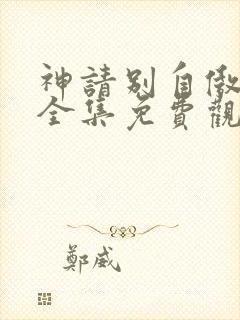 神請別自傲
全集免費觀
鄭威